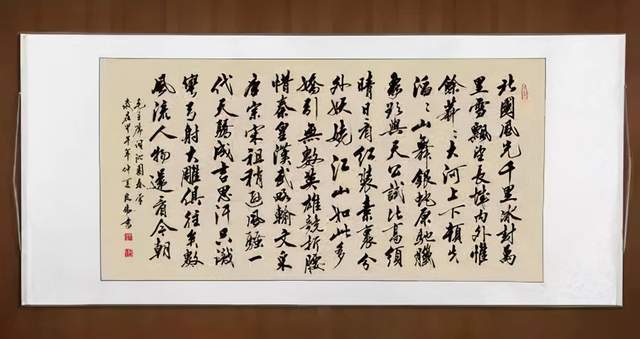 北國風光千里冰封萬
里雪飄望長城內外惟
餘莽〻大河上下頓失
滔〻山舞銀蛇原馳蠟
象欲與天公試比高須
晴日看紅裝素裹分
外妖嬈江山如此多
嬌引無數英雄競折腰
惜秦皇漢武略輸文采
唐宗宋祖稍遜風騷一
代天驕成吉思汗只識
彎弓射大雕俱往矣數
風流人物還看今朝
毛主席詞沁園春雪
歲在甲午年仲夏書